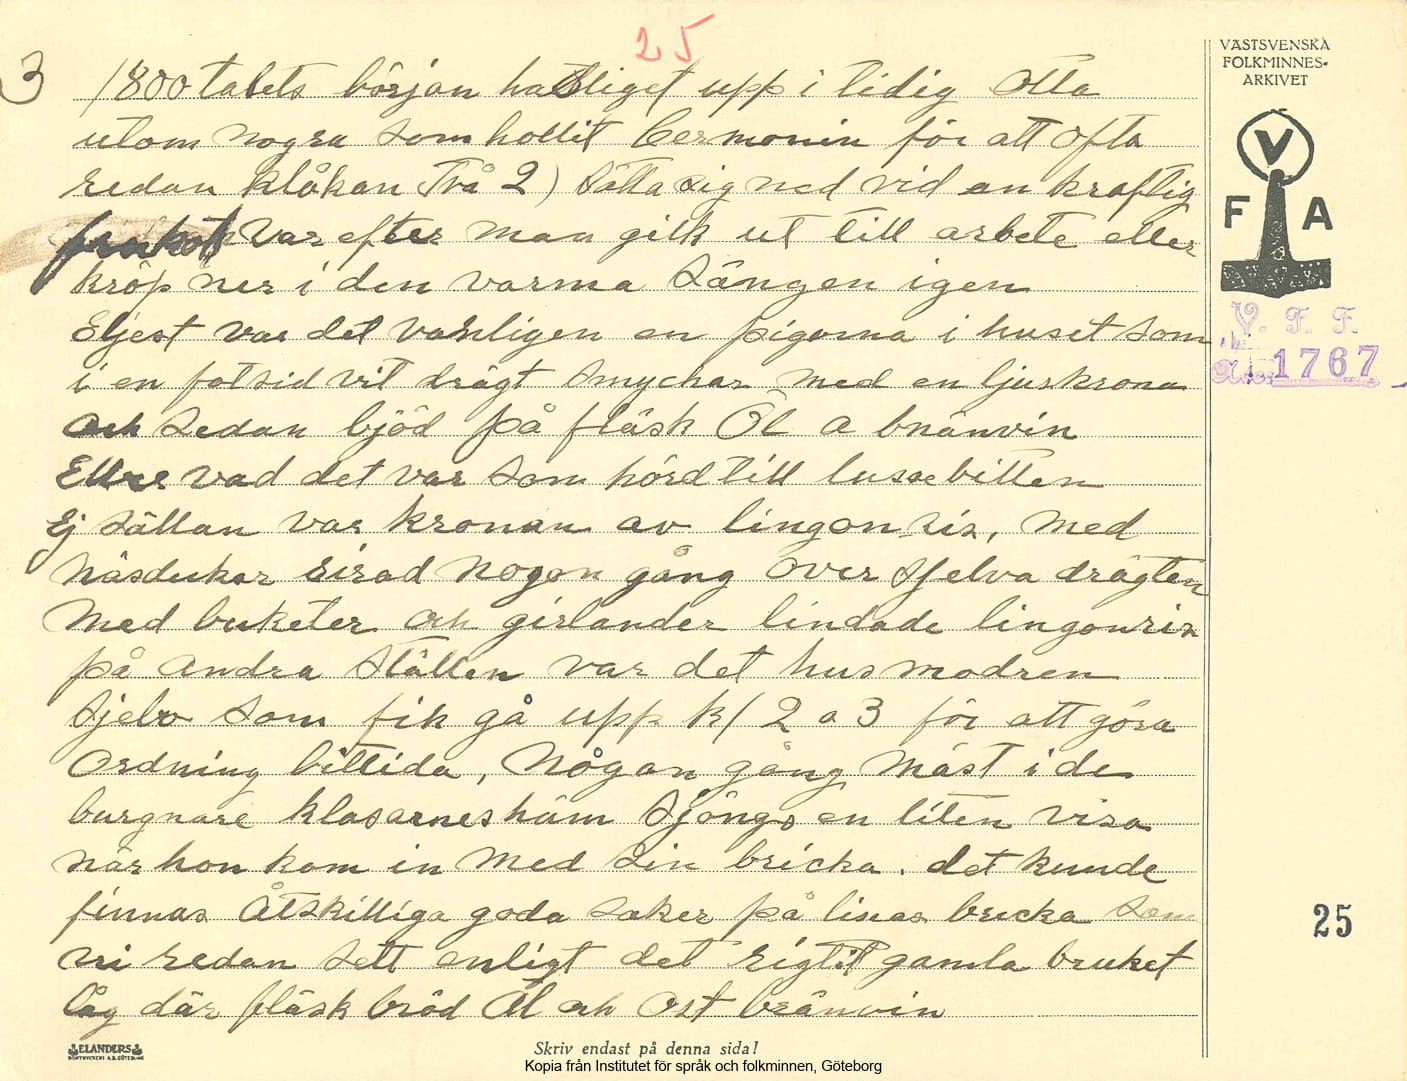 25
VÄSTSVENSKA
FOLKMINNES-
ARKIVET
3
1800 talets början hastliget upp i tidig Otta
utom nogra som hollit Cermonin för att ofta
redan klåkan Två 2) sätta sig ned vid en kraftig
frukost Var efter man gik ut till arbete eller
kröp ner i den varma Sängen igen
Eljest var det vanligen en pigorna i huset som
i en fotsid vit drägt smyckar med en ljuskrona
och sedan bjöd på fläsk Öl a bränvin
Eller vad det var som hörd till lussebitten
Ej sällan var kronan av lingon-ris, med
Näsdukar sirad nogon gång över sjelva drägten
Med buketer och girlander lindade lingonris
på andra ställen var det husmodren
sjelv som fik gå upp kl 2 a 3 för att göra
Ordning bittida, Någon gång mäst i de
burgnare klasarnes häm Sjöngs en liten visa
när hon kom in med sin bricka. det kunde
finnas Åtskilliga goda saker på lisas bricka som
vi redan sett enligt det rigtit gamla bruket
låg där fläsk bröd Öl och Ost bränvin
V
F A
V. F. F.
1767
25
ELANDERS
Skriv endast på denna sida!
Kopia från Institutet för språk och folkminnen, Göteborg